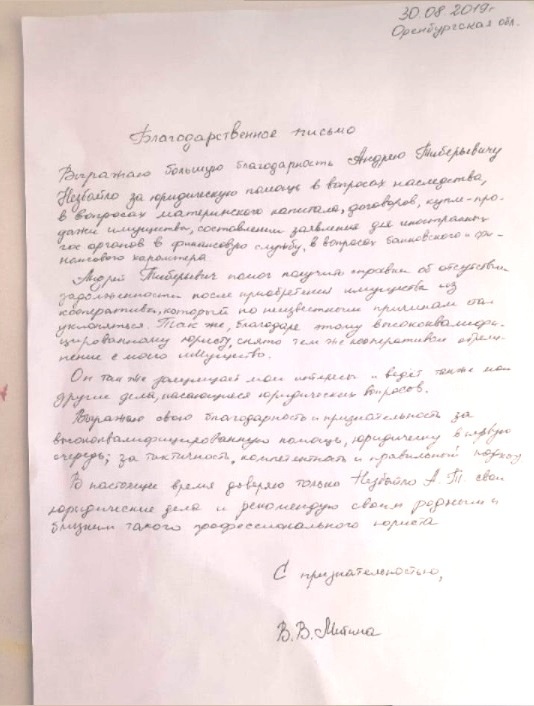 30.08.2019г.
Оренбургская обл.
Благодарственное письмо
Выражаю большую благодарность Андрею Тиберьевичу
Незбайло за юридическую помощь в вопросах наследства,
в вопросах материнского капитала, договоров, купле-про-
дажи имущества, составлении заявления для иностранных
гос органов в финансовую службу, в вопросах банковского и фи-
нансового характера.
Андрей Тиберьевич помог получить справки об отсутствии
задолженности после приобретения имущества из
кооператива, который по неизвестным причинам стал
уклоняться. Так же, благодаря этому высококвалифи-
цированному юристу, снято тем же кооперативом обреме-
нение с моего имущества.
Он так же защищает мои интересы и ведёт также мои
другие дела, касающиеся юридических вопросов.
Выражаю свою благодарность и признательность за
высококвалифицированную помощь, юридическую в первую
очередь; за тактичность, компетентность и правильный подход
В настоящее время доверяю только Незбайло А. Т. свои
юридические дела и рекомендую своим родным и
близким такого профессионального юриста
С признательностью,
В. В. Митина